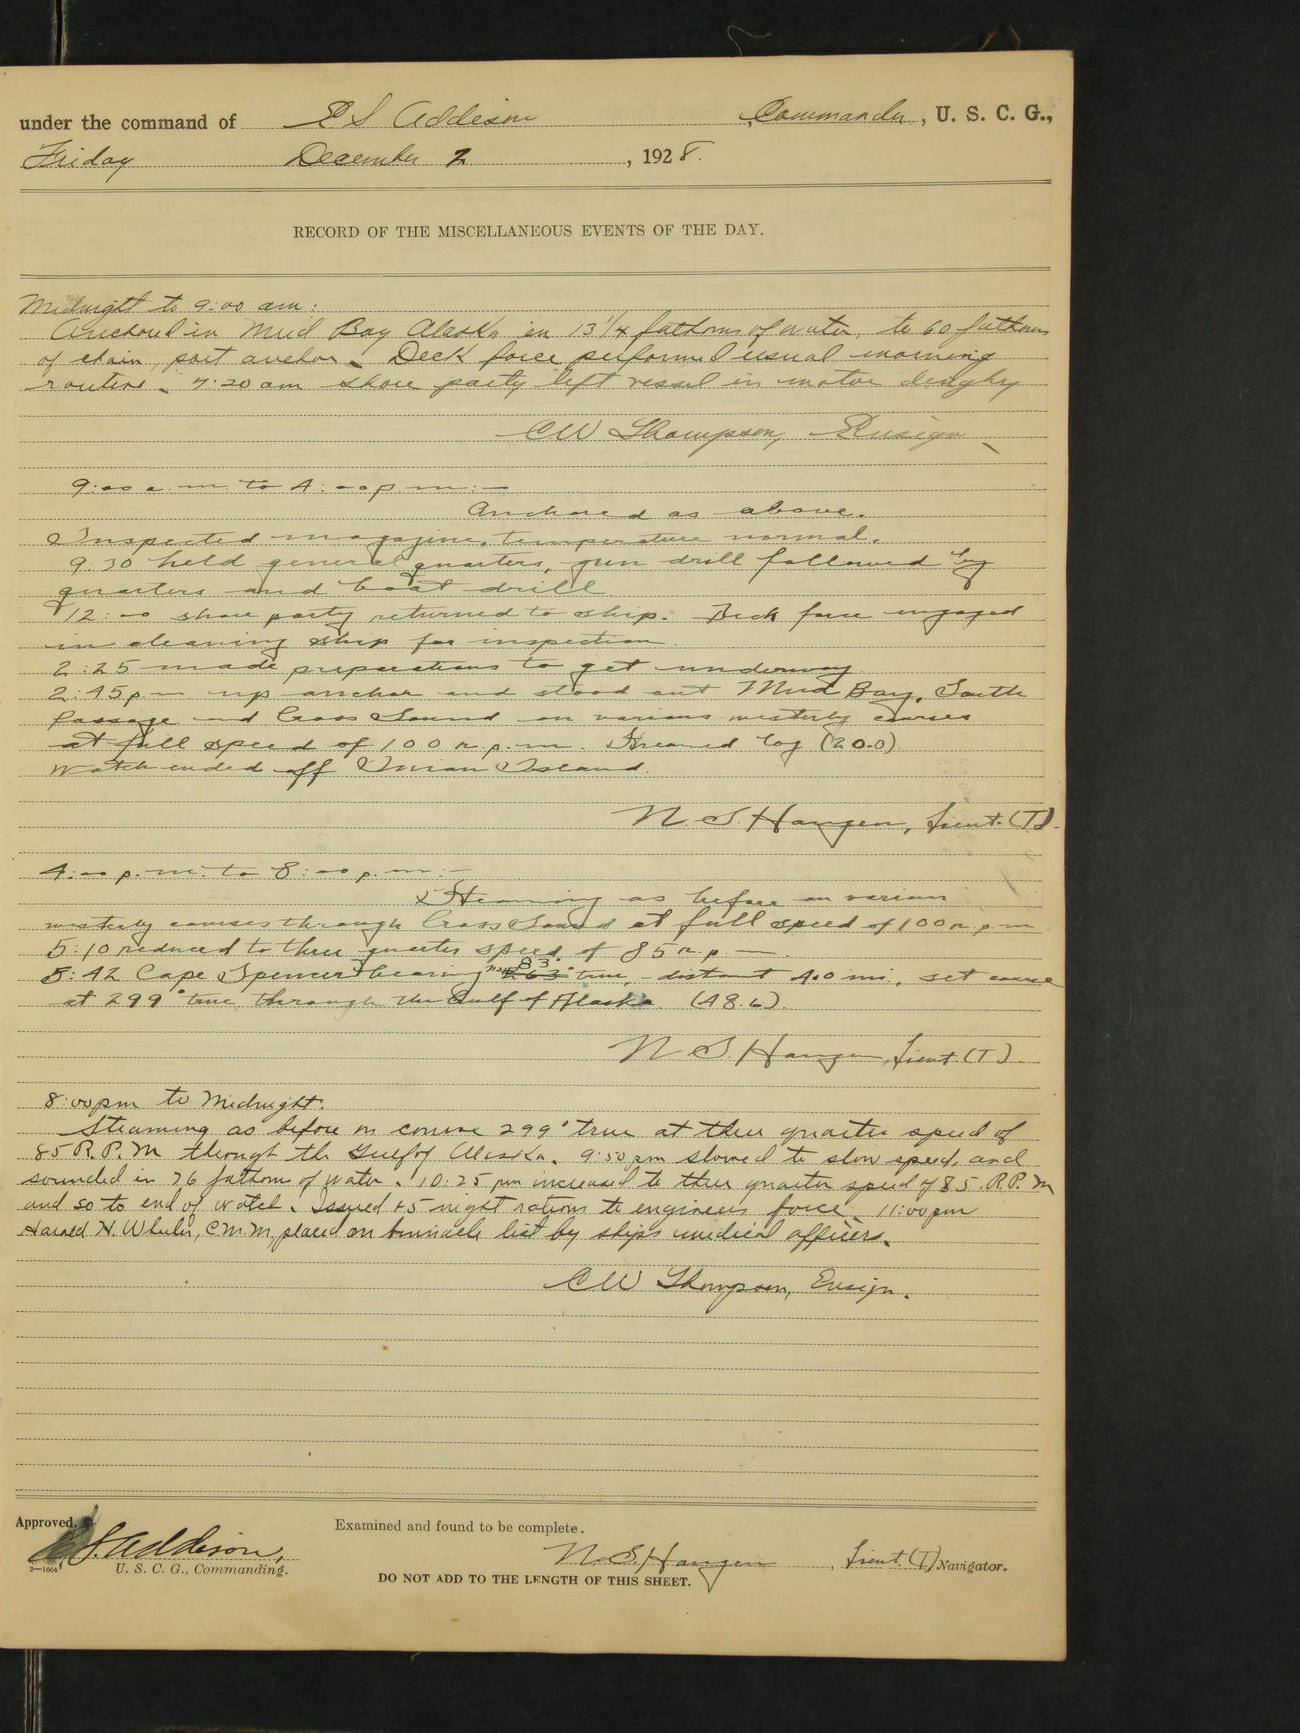 under the command of E S Addison , Commander , U. S. C. G.,
Friday December 2 , 1928.
RECORD OF THE MISCELLANEOUS EVENTS OF THE DAY.
Midnight to 9:00 am:
Anchored in Mud Bay Alaska in 13 1/4 fathoms of water, to 60 fathoms
of chain, port anchor. Deck force performed usual morning
routine. 7:20 am shore party left vessel in motor dinghy
CW Thompson, Ensign.
9:00 a.m. to 4:00 p.m:-
Anchored as above.
Inspected magazine, temperature normal.
9.30 held general quarters, gun drill followed by
quarters and boat drill
12:00 shore party returned to ship. Deck force engaged
in cleaning ship for inspection.
2:25 made preparations to get underway
2:45 p.m up anchor and stood out Mud Bay, South
Passage and Cross Sound on various westerly courses
at full speed of 100 r.p.m. Streamed log (20.0)
Watch ended off Inian Island.
N. S. Haugen, Lieut. (T).
4:00 p.m. to 8:00 p.m.:-
Steaming as before on various
westerly courses through Cross Sound at full speed of 100 r.p.m
5:10 reduced to three quarter speed of 85 r.p.m.
5:42 Cape Spencer bearing 83° true, distant 4.0 mi., set course
at 299° true, through the Gulf of Alaska. (48.6).
N. S. Haugen, Lieut. (T)
8:00 pm to Midnight.
Steaming as before on course 299° true at three quarter speed of
85 R.P.M through the Gulf of Alaska. 9:50 pm slowed to slow speed, and
sounded in 76 fathom of water. 10:25 pm increased to three quarter speed of 85 R.P.M
and so to end of watch. Issued 45 night rations to engineers force. 11:00 pm
H. Wheeler, C.M.M, placed on binnacle list by ship's medical officers.
CW Thompson, Ensign.
Approved.
E. S. Addison,
U. S. C. G., Commanding.
2—1664
Examined and found to be complete.
N. S. Haugen , Lieut. (T) Navigator.
DO NOT ADD TO THE LENGTH OF THIS SHEET.